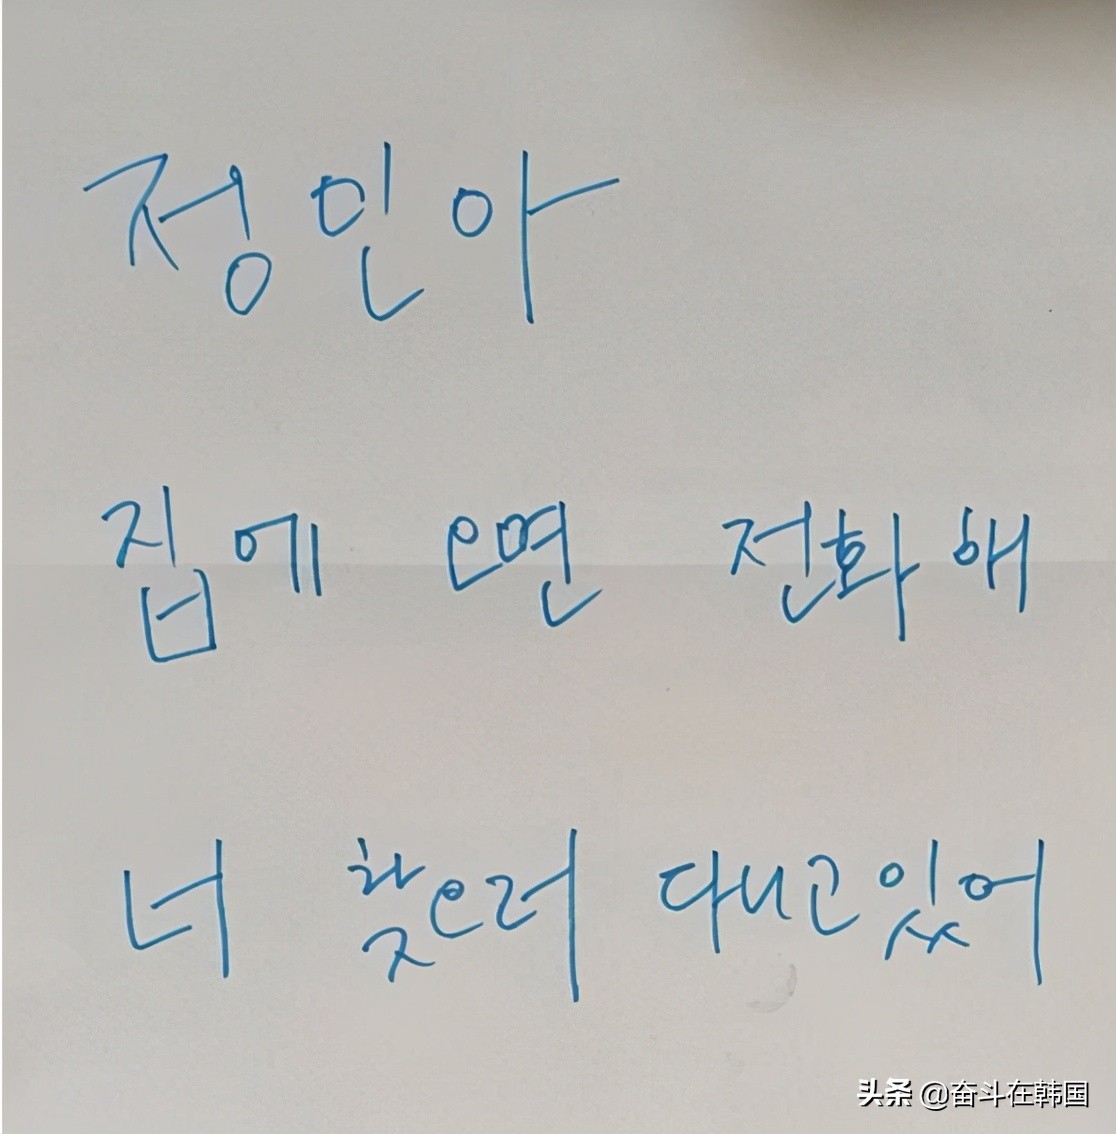 정인아
집에 오면 전화해
너 찾으러 다니고있어
头条 @奋斗在韩国